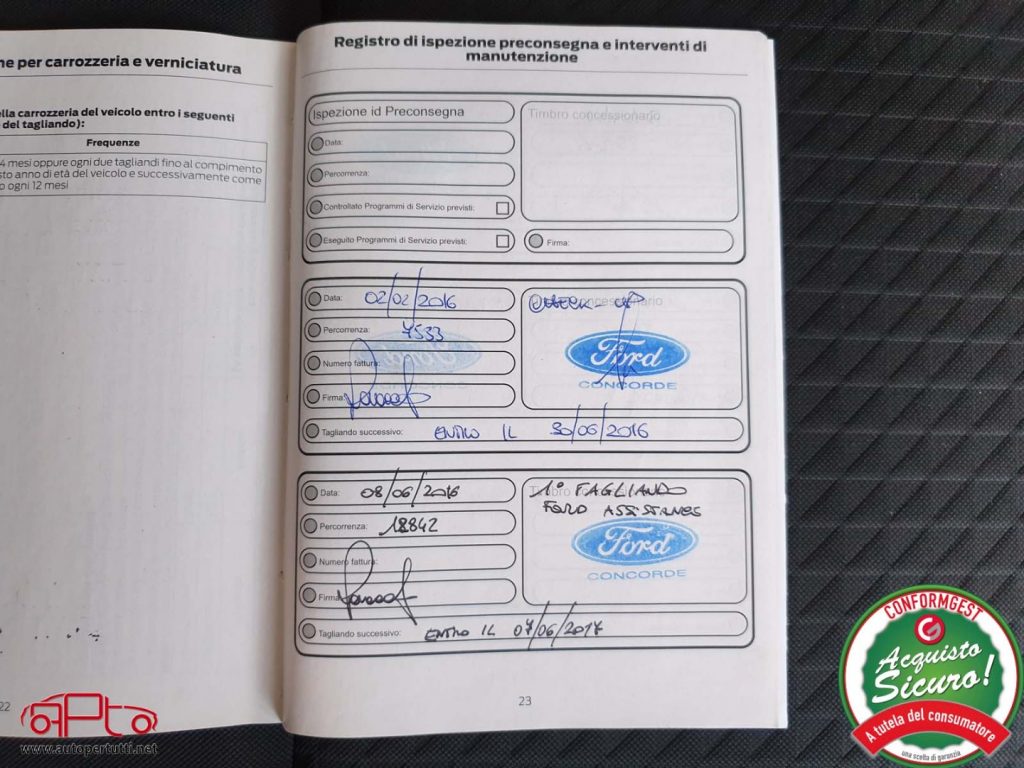 ne per carrozzeria e verniciatura
ella carrozzeria del veicolo entro i seguenti
del tagliando):
Frequenze
4 mesi oppure ogni due tagliandi fino al compimento
sto anno di età del veicolo e successivamente come
o ogni 12 mesi
22
Registro di ispezione preconsegna e interventi di
manutenzione
Ispezione id Preconsegna
Timbro concessionario
Data:
Percorrenza:
Controllato Programmi di Servizio previsti:
Eseguito Programmi di Servizio previsti:
Firma:
Data: 02/02/2016
Percorrenza: 7533
Numero fattura:
Firma:
Timbro concessionario
CHECK-UP
Ford
CONCORDE
Tagliando successivo: ENTRO IL 30/06/2016
Data: 08/06/2016
Percorrenza: 18842
Numero fattura:
Firma:
1° TAGLIANDO
FORD
Ford
CONCORDE
Tagliando successivo: ENTRO IL 07/06/2017
23
APto
www.autopertutti.net
CONFORMGEST
Acquisto
Sicuro!
A tutela del consumatore
una scelta di garanzia